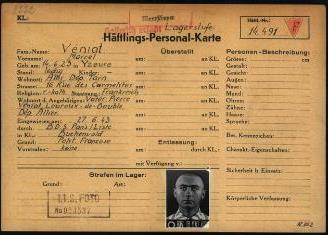 KL:
Häftl.-Nr.:
14 491
F
Häftlings-Personal-Karte
Fam.-Name: Véniat
Vorname: Marcel
Geb. am 14.6.23 in Yzeure
Stand: ledig Kinder: -
Wohnort: Albi Dép Tarn
Strasse: 16 Rue des Carmelites
Religion: r.-kath. Staatsang.: Frankreich
Wohnort d. Angehörigen: Vater: Pierre
Eingewiesen am: 27.6.43
durch: B.d.S. Paris
in KL: Buchenwald
Grund: Polit. Franzose
Vorstrafen: keine
Überstellt
am: an KL.
am: an KL.
am: an KL.
am: an KL.
am: an KL.
am: an KL.
Entlassung:
am: durch KL.:
mit Verfügung v.:
Personen-Beschreibung:
Grösse: cm
Gestalt:
Gesicht:
Augen:
Nase:
Mund:
Ohren:
Zähne:
Haare:
Sprache:
Bes. Kennzeichen:
Charakt.-Eigenschaften:
Sicherheit b. Einsatz:
Körperliche Verfassung:
Strafen im Lager:
Grund: Art:
I.T.S. FOTO